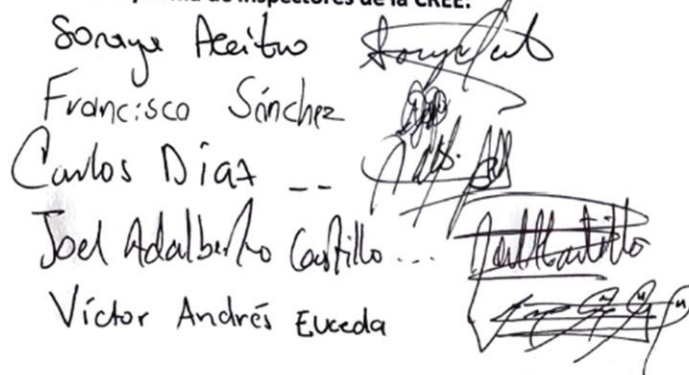 firma de inspectores de la CREE:
Soraya Aceituno
Francisco Sánchez
Carlos Díaz --
Joel Adalberto Castillo...
Víctor Andrés Euceda